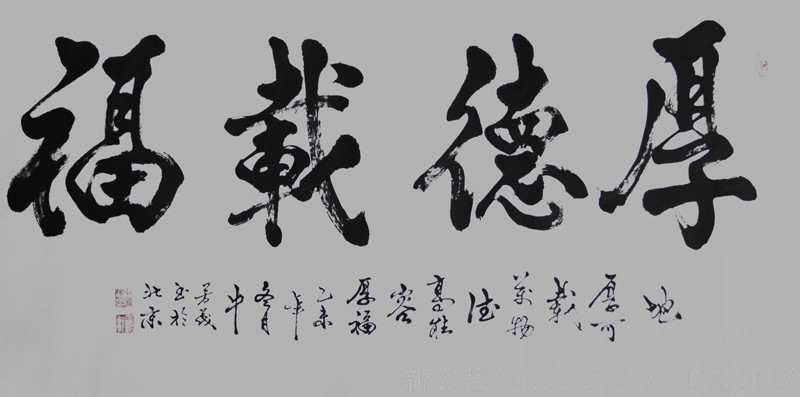 厚德載福
地
厚可
載
萬物
德
高能
容
厚福
乙未
年
冬月
中
芳義
玉於
北京